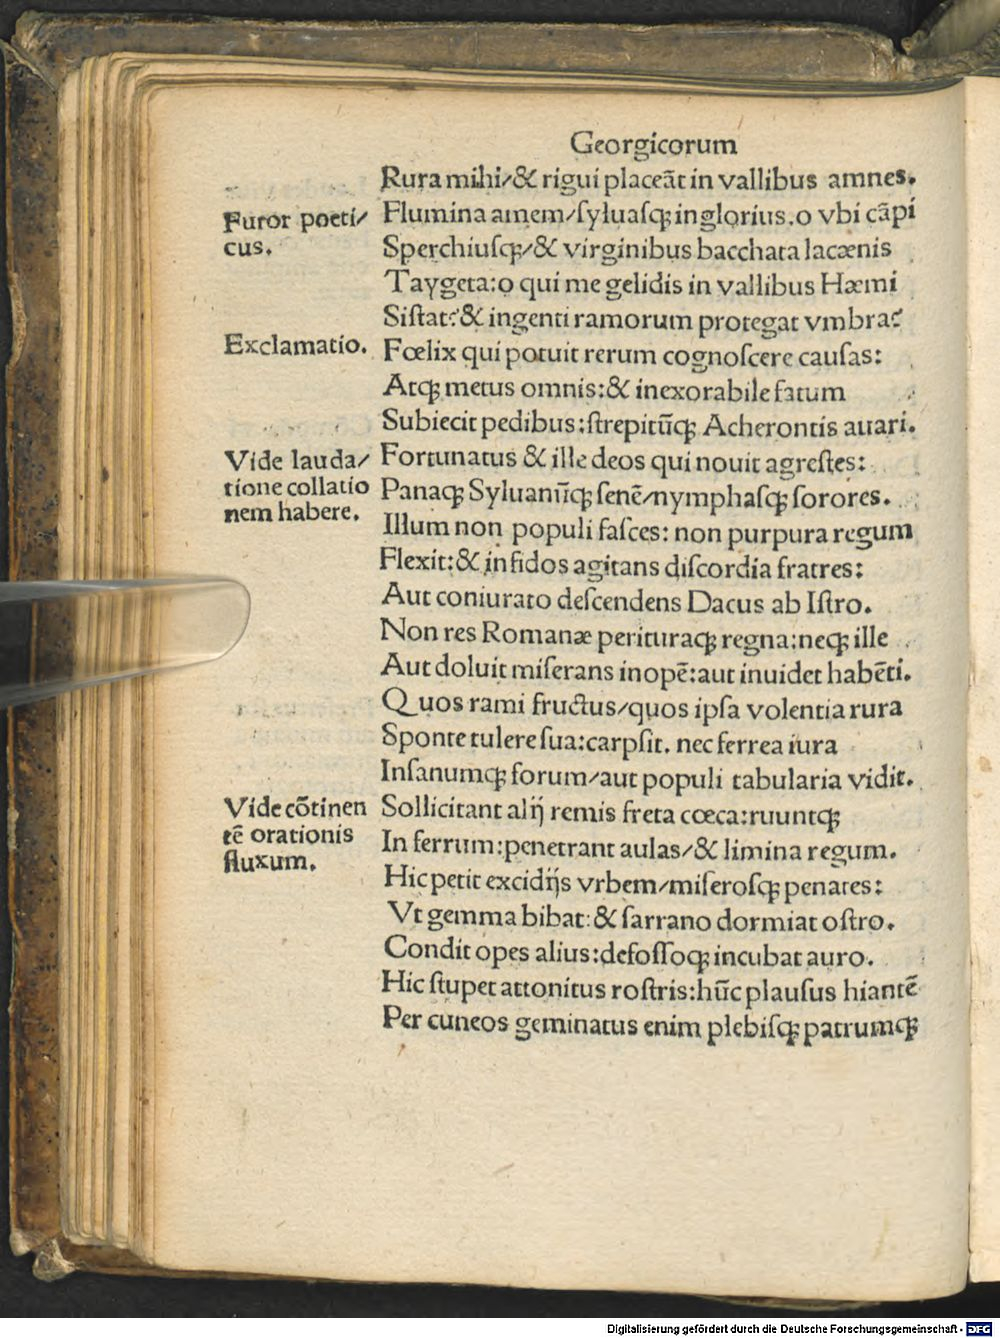 Georgicorum
Rura mihi/& rigui placeãt in vallibus amnes.
Flumina amem/ſyluaſqꝫ inglorius.o vbi cãpi
Furor poeti/
cus.
Sperchiuſqꝫ/& virginibus bacchata lacænis
Taygeta:o qui me gelidis in vallibus Hæmi
Siſtat:& ingenti ramorum protegat vmbra?
Exclamatio.
Fœlix qui potuit rerum cognoſcere cauſas:
Atqꝫ metus omnis:& inexorabile fatum
Subiecit pedibus:ſtrepitũqꝫ Acherontis auari.
Vide lauda/
tione collatio
nem habere.
Fortunatus & ille deos qui nouit agreſtes:
Panaqꝫ Syluanũqꝫ ſenẽ/nymphaſqꝫ ſorores.
Illum non populi faſces: non purpura regum
Flexit:& infidos agitans diſcordia fratres:
Aut coniurato deſcendens Dacus ab Iſtro.
Non res Romanæ perituraqꝫ regna:neqꝫ ille
Aut doluit miſerans inopẽ:aut inuidet habẽti.
Quos rami fructus/quos ipſa volentia rura
Sponte tulere ſua:carpſit. nec ferrea iura
Inſanumqꝫ forum/aut populi tabularia vidit.
Vide cõtinen
tẽ orationis
fluxum.
Sollicitant alij remis freta cœca:ruuntqꝫ
In ferrum:penetrant aulas/& limina regum.
Hic petit excidijs vrbem/miſeroſqꝫ penates:
Vt gemma bibat:& ſarrano dormiat oſtro.
Condit opes alius:defoſſoqꝫ incubat auro.
Hic ſtupet attonitus roſtris:hũc plauſus hiantẽ
Per cuneos geminatus enim plebiſqꝫ patrumqꝫ
Digitalisierung gefördert durch die Deutsche Forschungsgemeinschaft - DFG